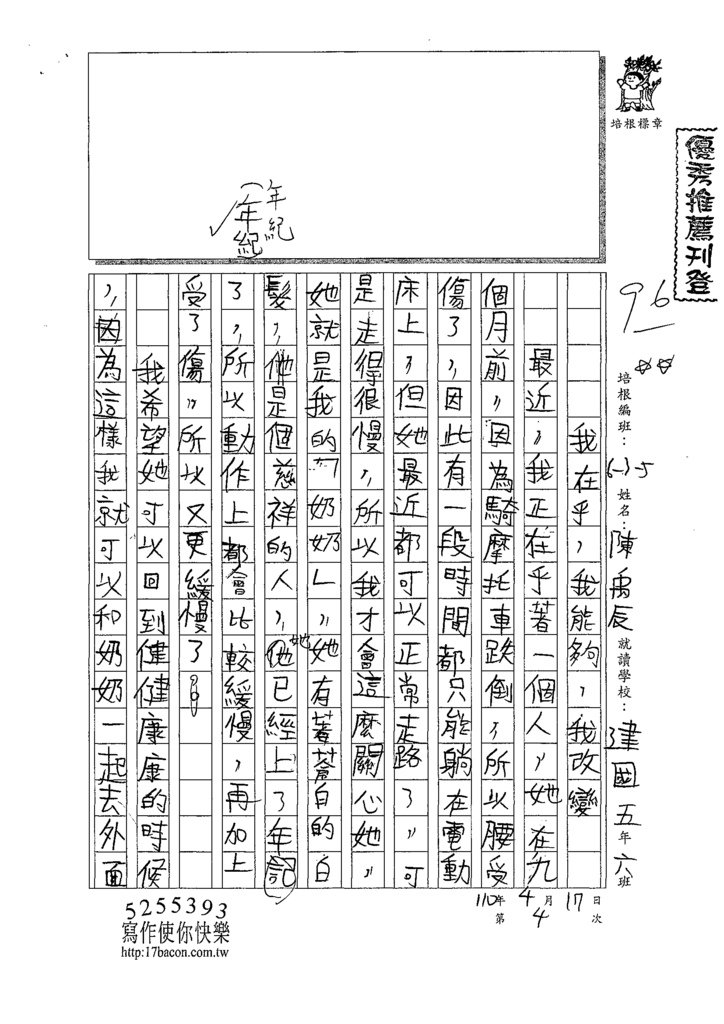 培根標章
優秀推薦刊登
96
培根編班：
姓名：陳禹辰
就讀學校：建國五年六班
110年4月17日
第4次
年紀
（年紀
我在乎，我能夠，我改變
最近，我正在乎著一個人，她在九
個月前，因為騎摩托車跌倒，所以腰受
傷了，因此有一段時間都只能躺在電動
床上，但她最近都可以正常走路了，可
是走得很慢，所以我才會這麼關心她，
她就是我的「奶奶」，她有著蒼白的白
髮，他是個慈祥的人，他她已經上了年記
了，所以動作上都會比較緩慢，再加上
受了傷，所以又更緩慢了。
我希望她可以回到健健康康的時候
，因為這樣我就可以和奶奶一起去外面
5255393
寫作使你快樂
http:17bacon.com.tw